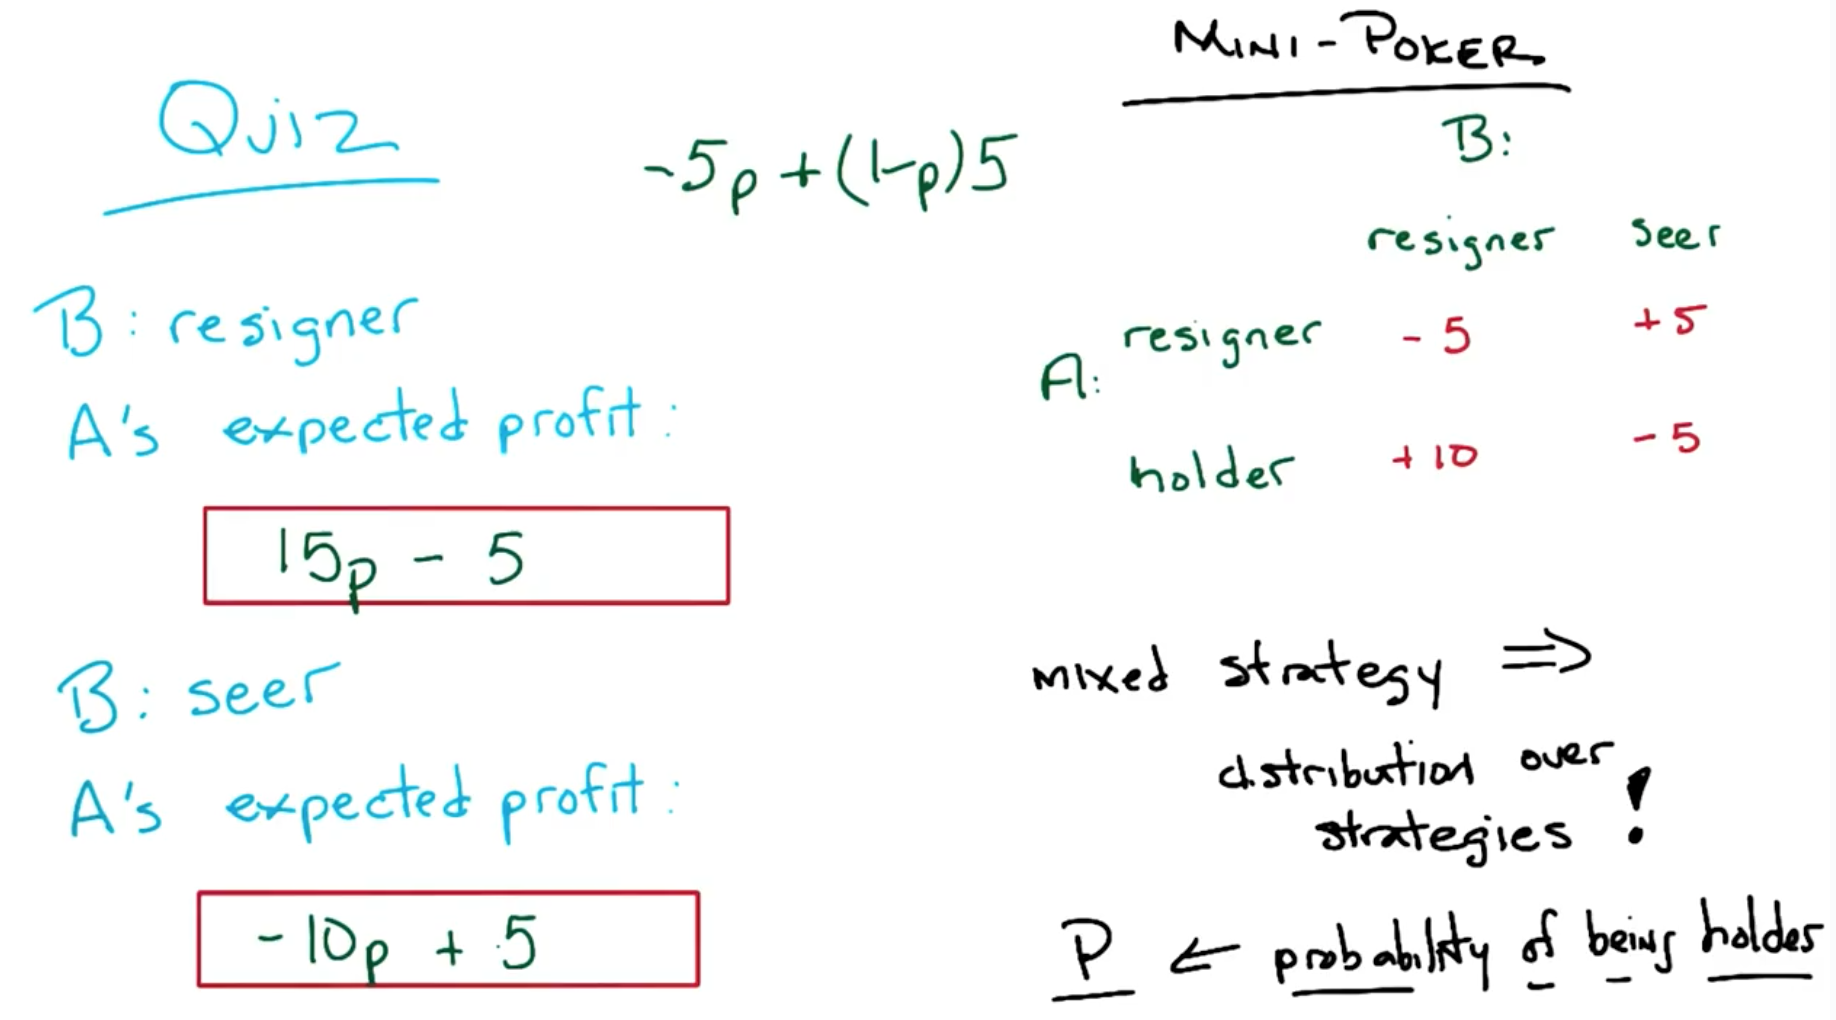 Quiz
-5p + (1-p)5
B: resigner
A's expected profit:
15p - 5
B: seer
A's expected profit:
-10p + 5
MINI-POKER
B:
resigner seer
A:
resigner -5 +5
holder +10 -5
mixed strategy ⇒
distribution over
strategies !
P ← probability of being holder